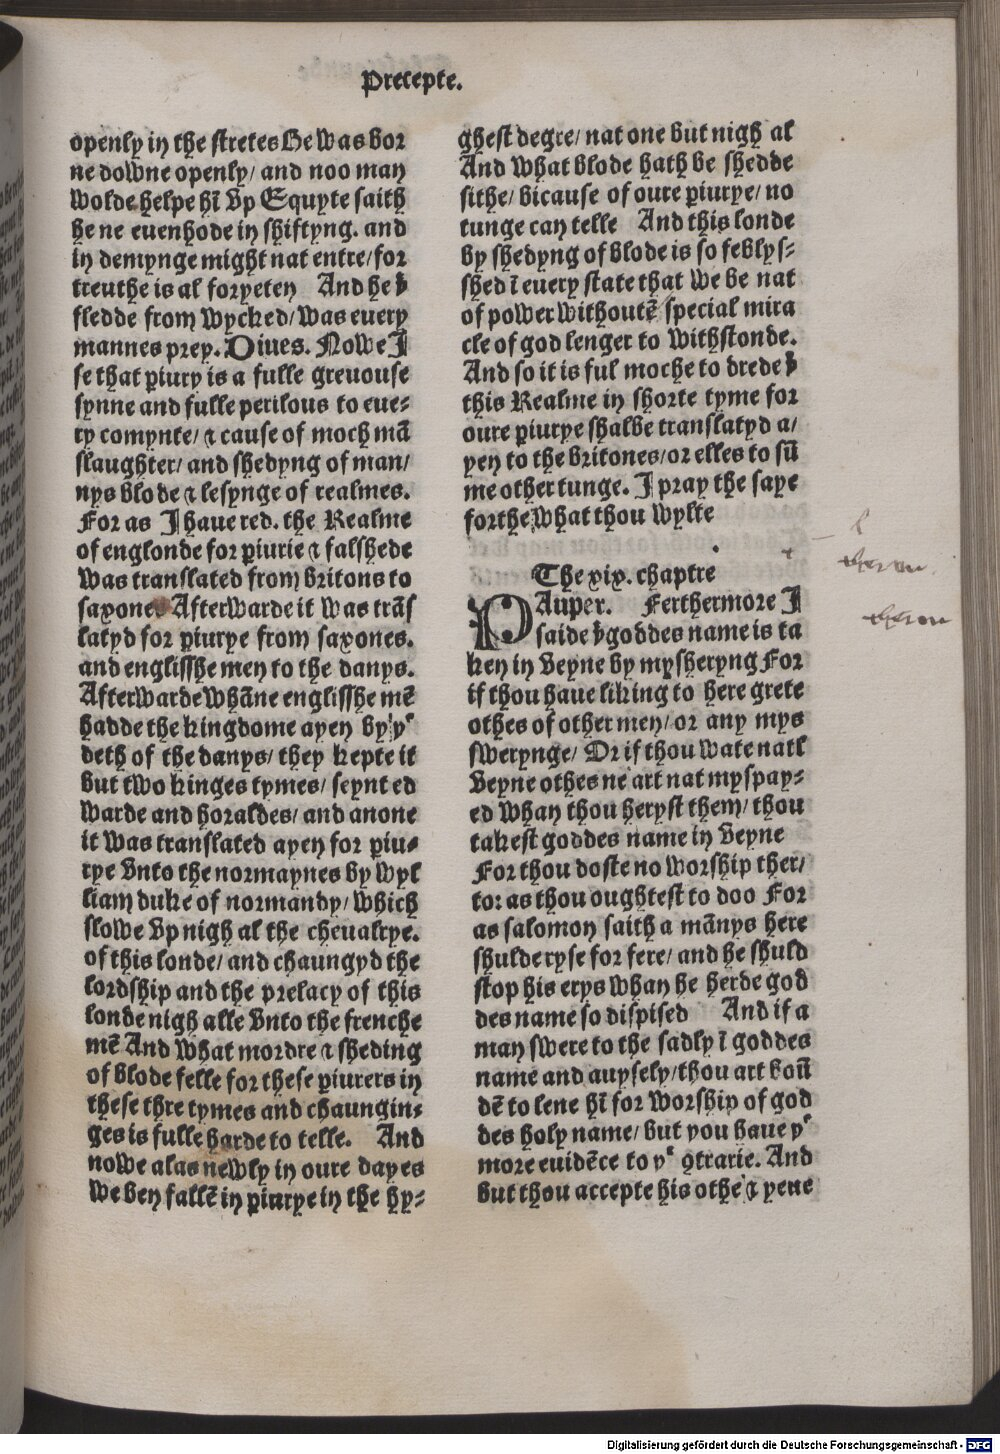 Precepte.
openly in the stretes He was bor
ne downe openly/ and noo man
wolde helpe hī vp Equyte saith
he ne euenhode in shiftyng. and
in demynge might nat entre/ for
treuthe is al foryeten And he þᵗ
fledde from wycked/ was euery
mannes prey. Diues. Nowe I
se that piury is a fulle greuouse
synne and fulle perilous to eue⸗
ry comynte/ ⁊ cause of moch mā
slaughter/ and shedyng of man/
nys blode ⁊ lesynge of realmes.
For as I haue red. the Realme
of englonde for piurie ⁊ falshede
was translated from britons to
saxones Afterwarde it was trās
latyd for piurye from saxones.
and englisshe men to the danys.
Afterwarde whāne englisshe mē
hadde the kingdome ayen by yᵉ
deth of the danys/ they kepte it
but two kinges tymes/ seynt ed
warde and horaldes/ and anone
it was translated ayen for piu⸗
rye vnto the normaynes by wyl
liam duke of normandy/ which
slowe vp nigh al the cheualrye.
of this londe/ and chaungyd the
lordship and the prelacy of this
londe nigh alle vnto the frenche
mē And what mordre ⁊ sheding
of blode felle for these piurers in
these thre tymes and chaungin⸗
ges is fulle harde to telle. And
nowe alas newly in oure dayes
we ben fallē in piurye in the hy⸗
ghest degre/ nat one but nigh al
And what blode hath be shedde
sithe/ bicause of oure piurye/ no
tunge can telle And this londe
by shedyng of blode is so feblys⸗
shed ī euery state that we be nat
of power withoutē special mira
cle of god lenger to withstonde.
And so it is ful moche to drede þᵗ
this Realme in shorte tyme for
oure piurye shalbe translatyd a/
yen to the britones/ or elles to sū
me other tunge. I pray the saye
forthe what thou wylte
The xix. chaptre
PAuper. Ferthermore I
saide þᵗ goddes name is ta
ken in veyne by mysheryng For
if thou haue liking to here grete
othes of other men/ or any mys
swerynge/ Or if thou wate natl
veyne othes ne art nat myspay⸗
ed whan thou heryst them/ thou
takest goddes name in veyne
For thou doste no worship ther/
to: as thou oughtest to doo For
as salomon saith a mānys here
shulde ryse for fere/ and he shuld
stop his erys whan he herde god
des name so dispised And if a
man swere to the sadly ī goddes
name and auysely/ thou art boū
dē to leue hī for worship of god
des holy name/ but you haue yᵉ
more euidēce to yᵉ ꝯtrarie. And
but thou accepte his othe ⁊ yeue
Digitalisierung gefördert durch die Deutsche Forschungsgemeinschaft - DFG